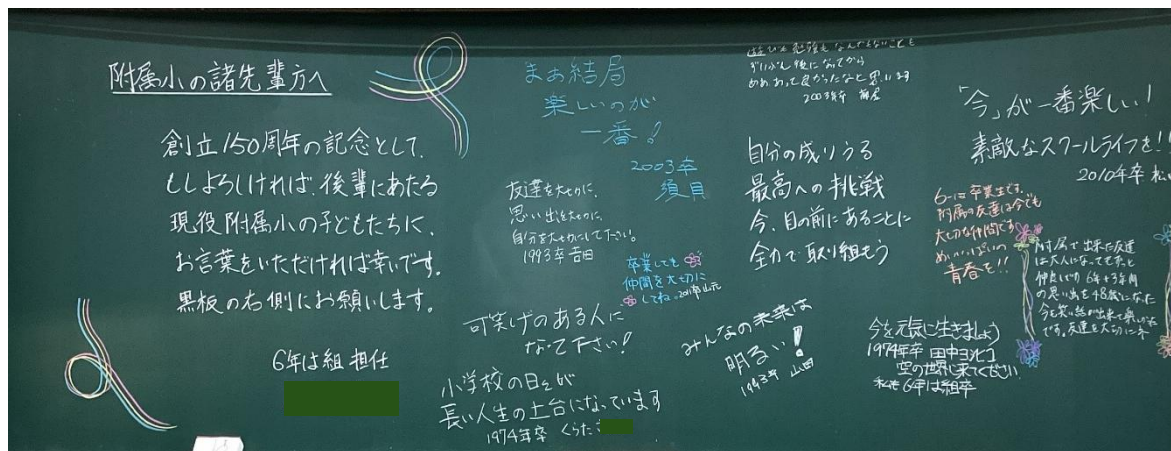 附属小の諸先輩方へ
創立150周年の記念として、
もしよろしければ、後輩にあたる
現役附属小の子どもたちに、
お言葉をいただければ幸いです。
黒板の右側にお願いします。
6年は組 担任
まぁ結局
楽しいのが
一番!
2003卒
須貝
友達を大切に、
思い出を大切に、
自分を大切にして下さい。
1993卒 吉田
卒業しても
仲間を大切に
してね。2011卒 山元
可笑げのある人に
なって下さい!
小学校の日々が
長い人生の土台になっています
1974年卒 くらた
遊びも勉強もなんでもないことも
ずいぶん後になってから
めぐって良かったなと思います
2003年卒
自分の成りうる
最高への挑戦
今、目の前にあることに
全力で取り組もう
みんなの未来は
明るい!
1993年 山田
「今」が一番楽しい!
素敵なスクールライフを!!
2010年卒 松山
6-は卒業生です。
附属の友達は今でも
大切な仲間です
めいいっぱいの
青春を!!
附属で出来た友達
は大人になってもずっと
仲良しだ!6年+3年間
の思い出を48歳になった
今も笑い話が出来て楽し
です。友達を大切にネ
今を元気に生きましょう
1974年卒 田中ヨシヒコ
空の世界に来てください
私も6年は組卒